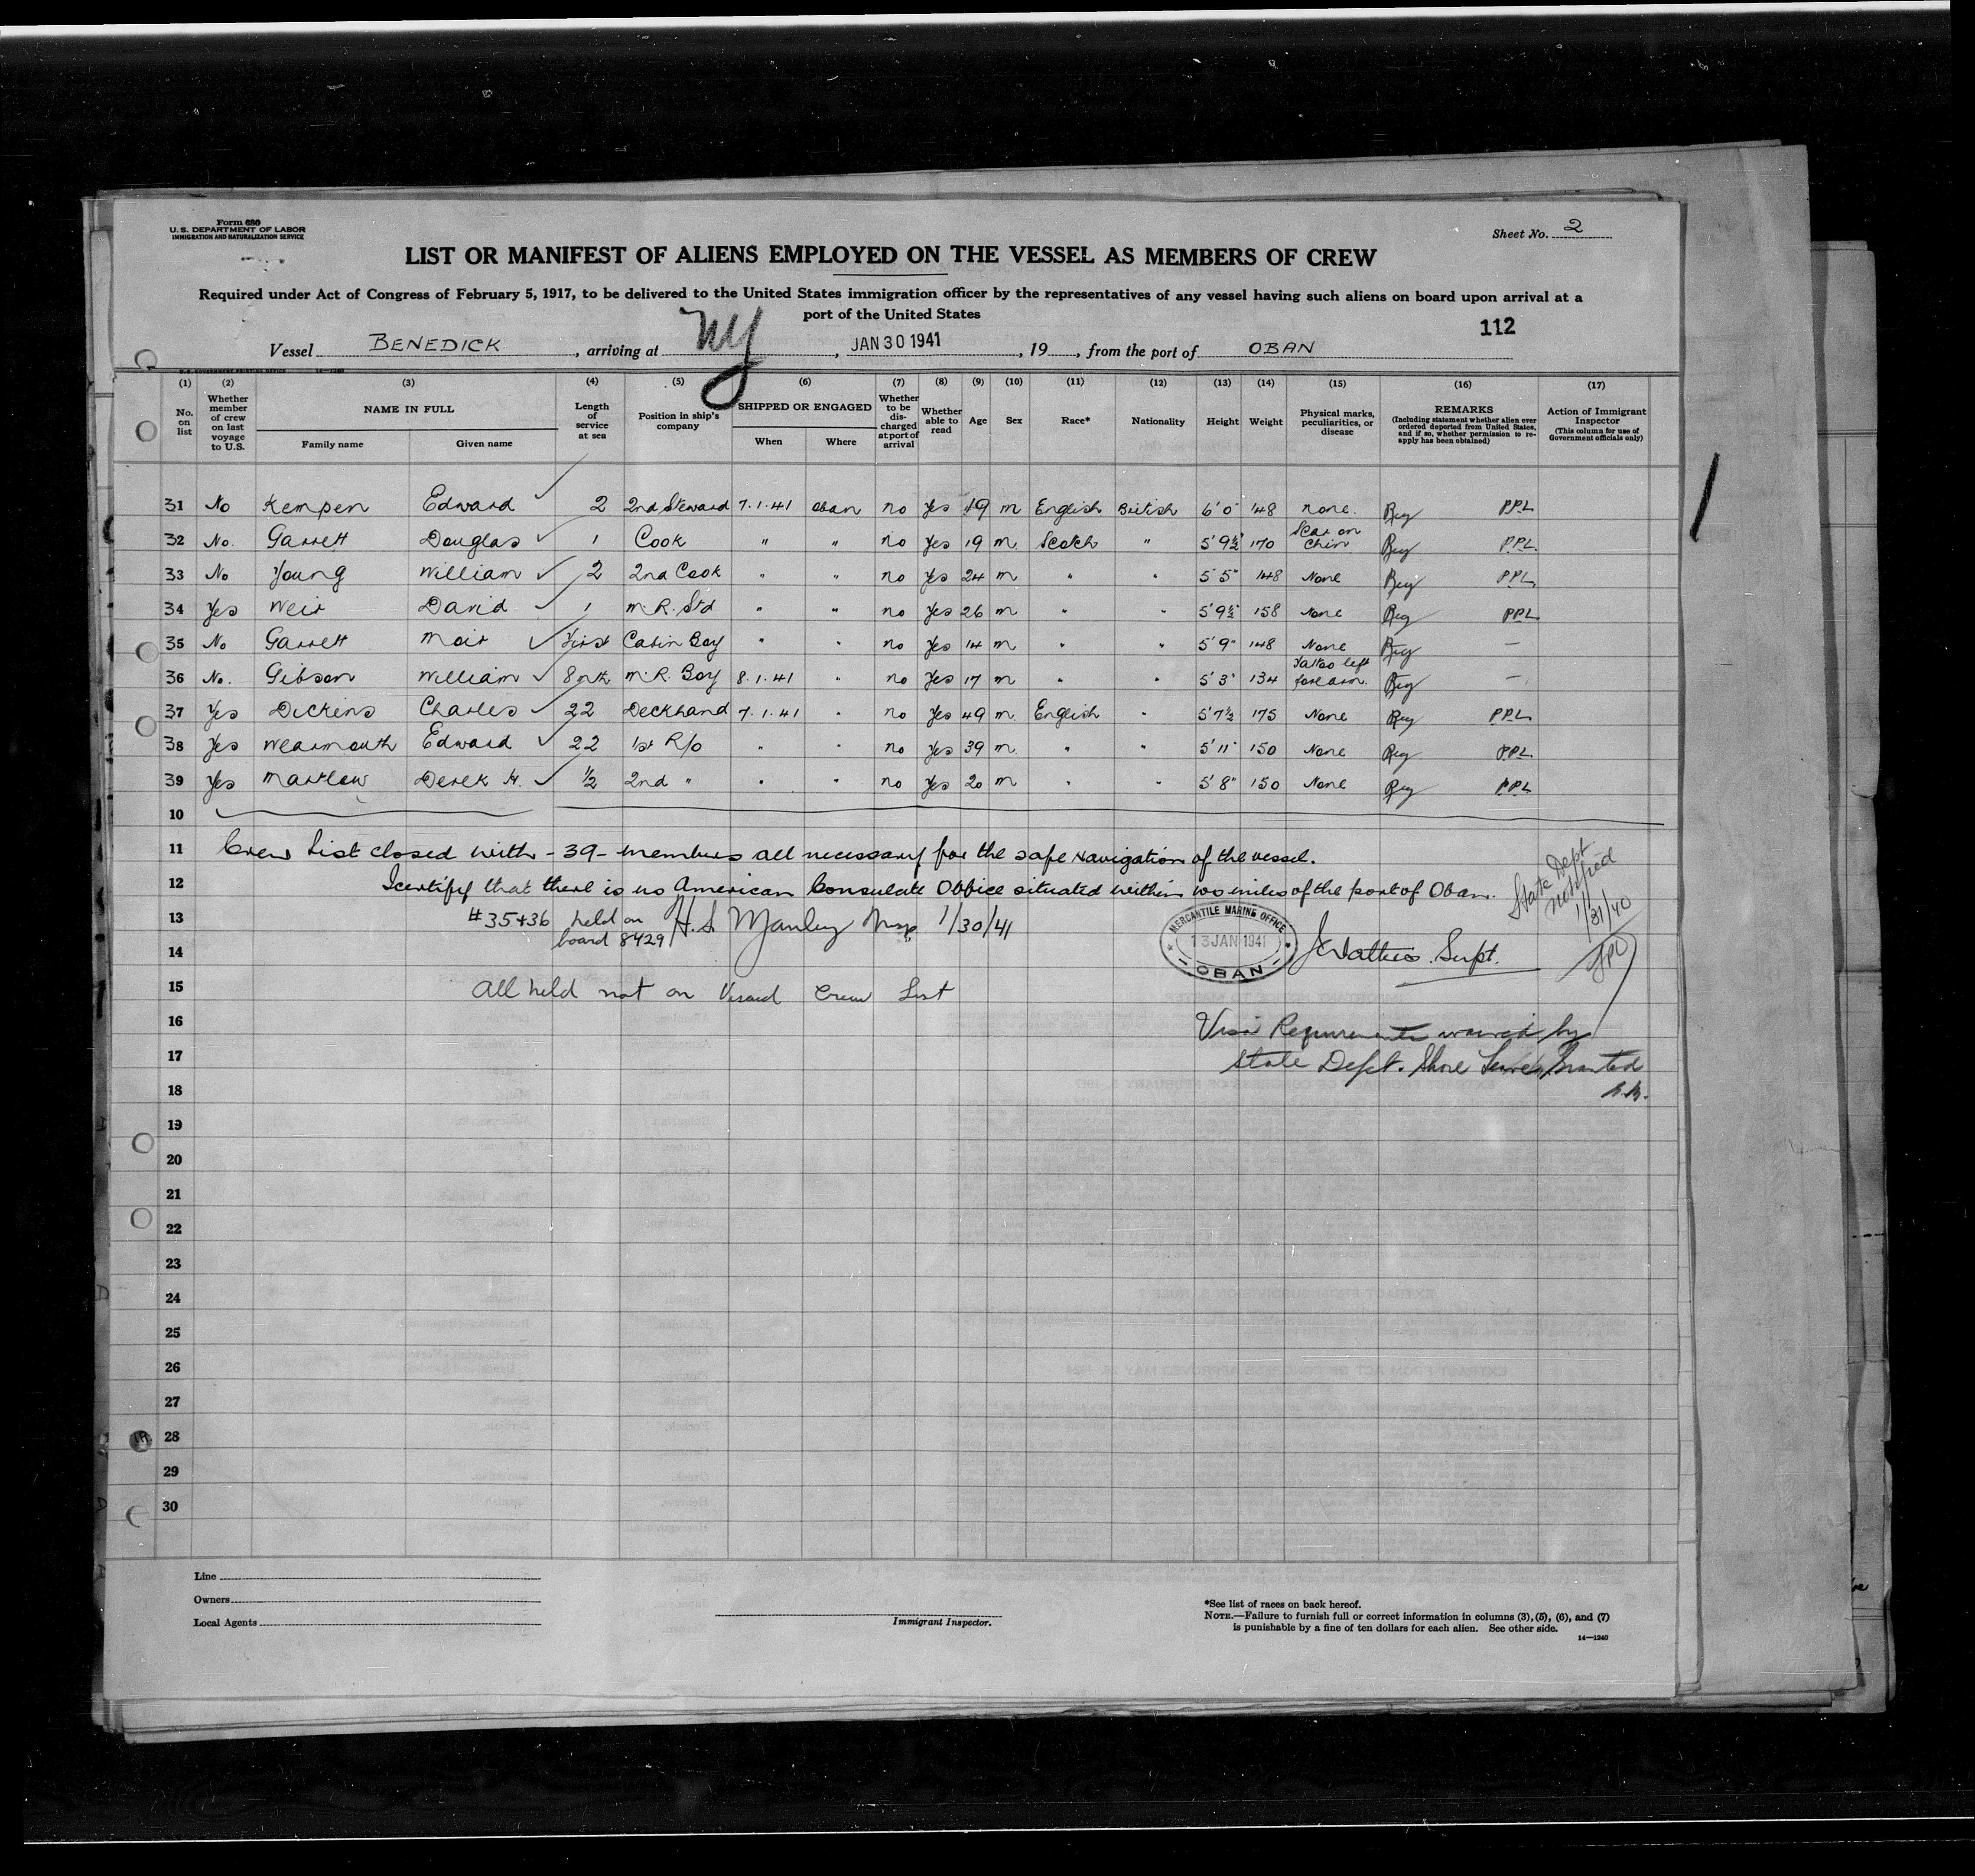 Form 680
U.S. DEPARTMENT OF LABOR
IMMIGRATION AND NATURALIZATION SERVICE
Sheet No. 2
LIST OR MANIFEST OF ALIENS EMPLOYED ON THE VESSEL AS MEMBERS OF CREW
Required under Act of Congress of February 5, 1917, to be delivered to the United States immigration officer by the representatives of any vessel having such aliens on board upon arrival at a
port of the United States
112
Vessel BENEDICK, arriving at NY, JAN 30 1941, 19, from the port of OBAN
U.S. GOVERNMENT PRINTING OFFICE 14—1240
(1) (2) (3) (4) (5) (6) (7) (8) (9) (10) (11) (12) (13) (14) (15) (16) (17)
No. on list
Whether member of crew on last voyage to U.S.
NAME IN FULL
Family name Given name
Length of service at sea
Position in ship's company
SHIPPED OR ENGAGED
When Where
Whether to be discharged at port of arrival
Whether able to read
Age
Sex
Race*
Nationality
Height
Weight
Physical marks, peculiarities, or disease
REMARKS
(Including statement whether alien ever ordered deported from United States, and if so, whether permission to re-apply has been obtained)
Action of Immigrant Inspector
(This column for use of Government officials only)
31 No Kempen Edward ✓ 2 2nd Steward 7.1.41 Oban no Yes 19 m English British 6'0" 148 none. Reg PPL
32 No. Garrett Douglas ✓ 1 Cook " " no Yes 19 m. Scotch " 5'9½" 170 Scar on chin Reg P.P.L.
33 No Young William ✓ 2 2nd Cook " " no Yes 24 m " " 5'5" 148 None Reg PPL
34 Yes Weir David ✓ 1 m.R. Std " " no Yes 26 m " " 5'9½" 158 None Reg PPL
35 No Garrett Moir ✓ First Cabin Boy " " no Yes 14 m " " 5'9" 148 None Reg —
36 No. Gibson William ✓ 8 mth m.R. Boy 8.1.41 " no Yes 17 m " " 5'3" 134 Tattoo left forearm. Reg —
37 Yes Dickens Charles ✓ 22 Deckhand 7.1.41 " no Yes 49 m. English " 5'7½ 175 None Reg PPL
38 Yes Wearmouth Edward ✓ 22 1st R/o " " no Yes 39 m. " " 5'11" 150 None Reg PPL
39 Yes Martlew Derek H. ✓ ½ 2nd " " " no Yes 20 m " " 5'8" 150 None Reg P.P.L
10
11 Crew List closed with - 39 - members all necessary for the safe navigation of the vessel.
12 I certify that there is no American Consulate Office situated within 100 miles of the port of Oban.
State Dept
notified
1/31/40
13 #35+36 held on H.S. Manley Insp 1/30/41
board 8429
MERCANTILE MARINE OFFICE
13 JAN 1941
OBAN
Supt.
14
15 All held not on Visaed Crew List
16 Visa Requirements waived by
17 State Dept. Shore Leave Granted
18
19
20
21
22
23
24
25
26
27
28
29
30
Line
Owners
Local Agents
Immigrant Inspector.
*See list of races on back hereof.
NOTE.—Failure to furnish full or correct information in columns (3), (5), (6), and (7)
is punishable by a fine of ten dollars for each alien. See other side.
14—1240